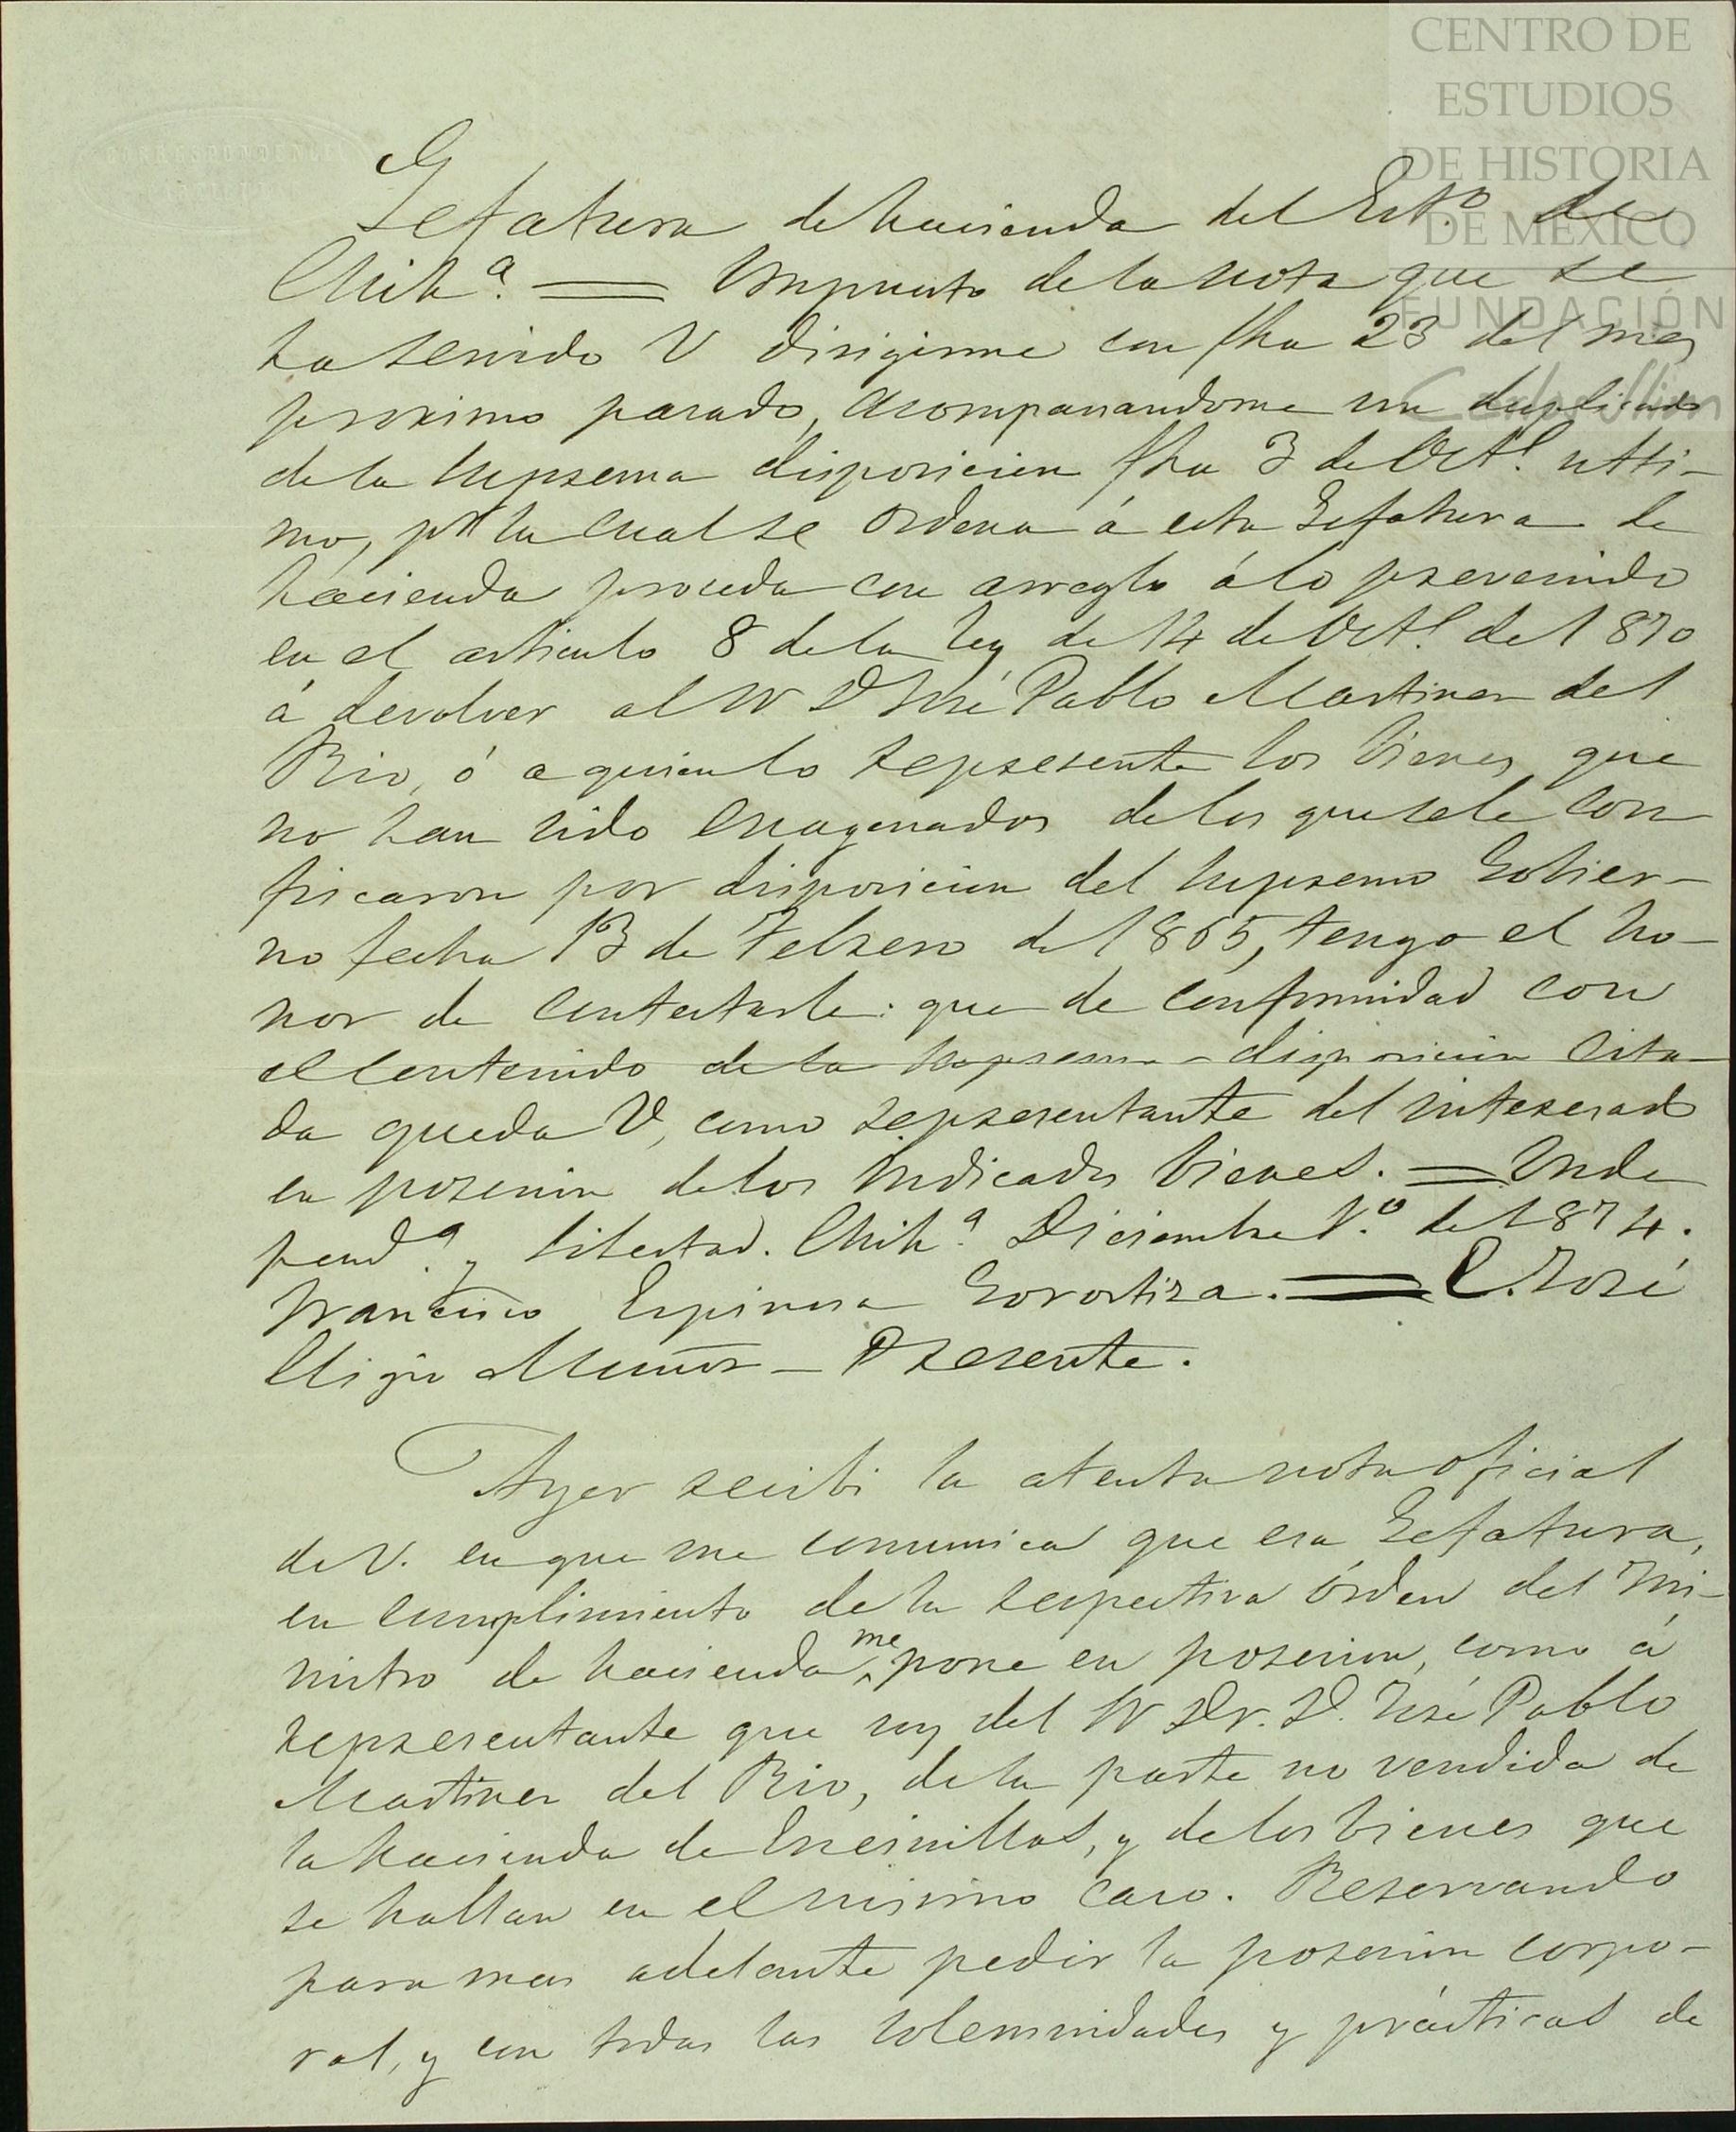 CENTRO DE
ESTUDIOS
DE HISTORIA
DE MEXICO
FUNDACIÓN
CORRESPONDENCIA
Gefatura de hacienda del Est.º de
Chih.ª = Impuesto de la nota que se
ha servido V dirigirme con fha 23 del mes
proximo pasado, acompanandome un duplicado
de la suprema disposicion fha 3 de Oct.e ulti-
mo, pr la cual se ordena á esta Gefatura de
hacienda proceda con arreglo á lo prevenido
en el articulo 8 de la ley de 14 de Oct.e de 1870
á devolver al Sr D José Pablo Martinez del
Rio, ó a quien lo represente los bienes que
no han sido enagenados de los que se le con
fiscaron por disposicion del Supremo Gobier-
no fecha 13 de Febrero de 1865, tengo el ho-
nor de contestarle: que de conformidad con
el contenido de la suprema disposicion cita-
da queda V, como representante del interesado
en posesion de los indicados bienes. = Inde
pend.ª y libertad. Chih.ª Diciembre 1.º de 1874.
Francisco Espinosa Gorostiza. = C. José
Eligio Muñoz - Presente.
Ayer recibi la atenta nota oficial
de V. en que me comunica que esa Gefatura,
en cumplimiento de la respectiva órden del Mi-
nistro de hacienda me pone en posesion, como á
representante que soy del Sr Dr. D. José Pablo
Martinez del Rio, de la parte no vendida de
la hacienda de Encinillas, y de los bienes que
se hallan en el mismo caso. Reservando
para mas adelante pedir la posesion corpo-
ral, y con todas las solemnidades y prácticas de